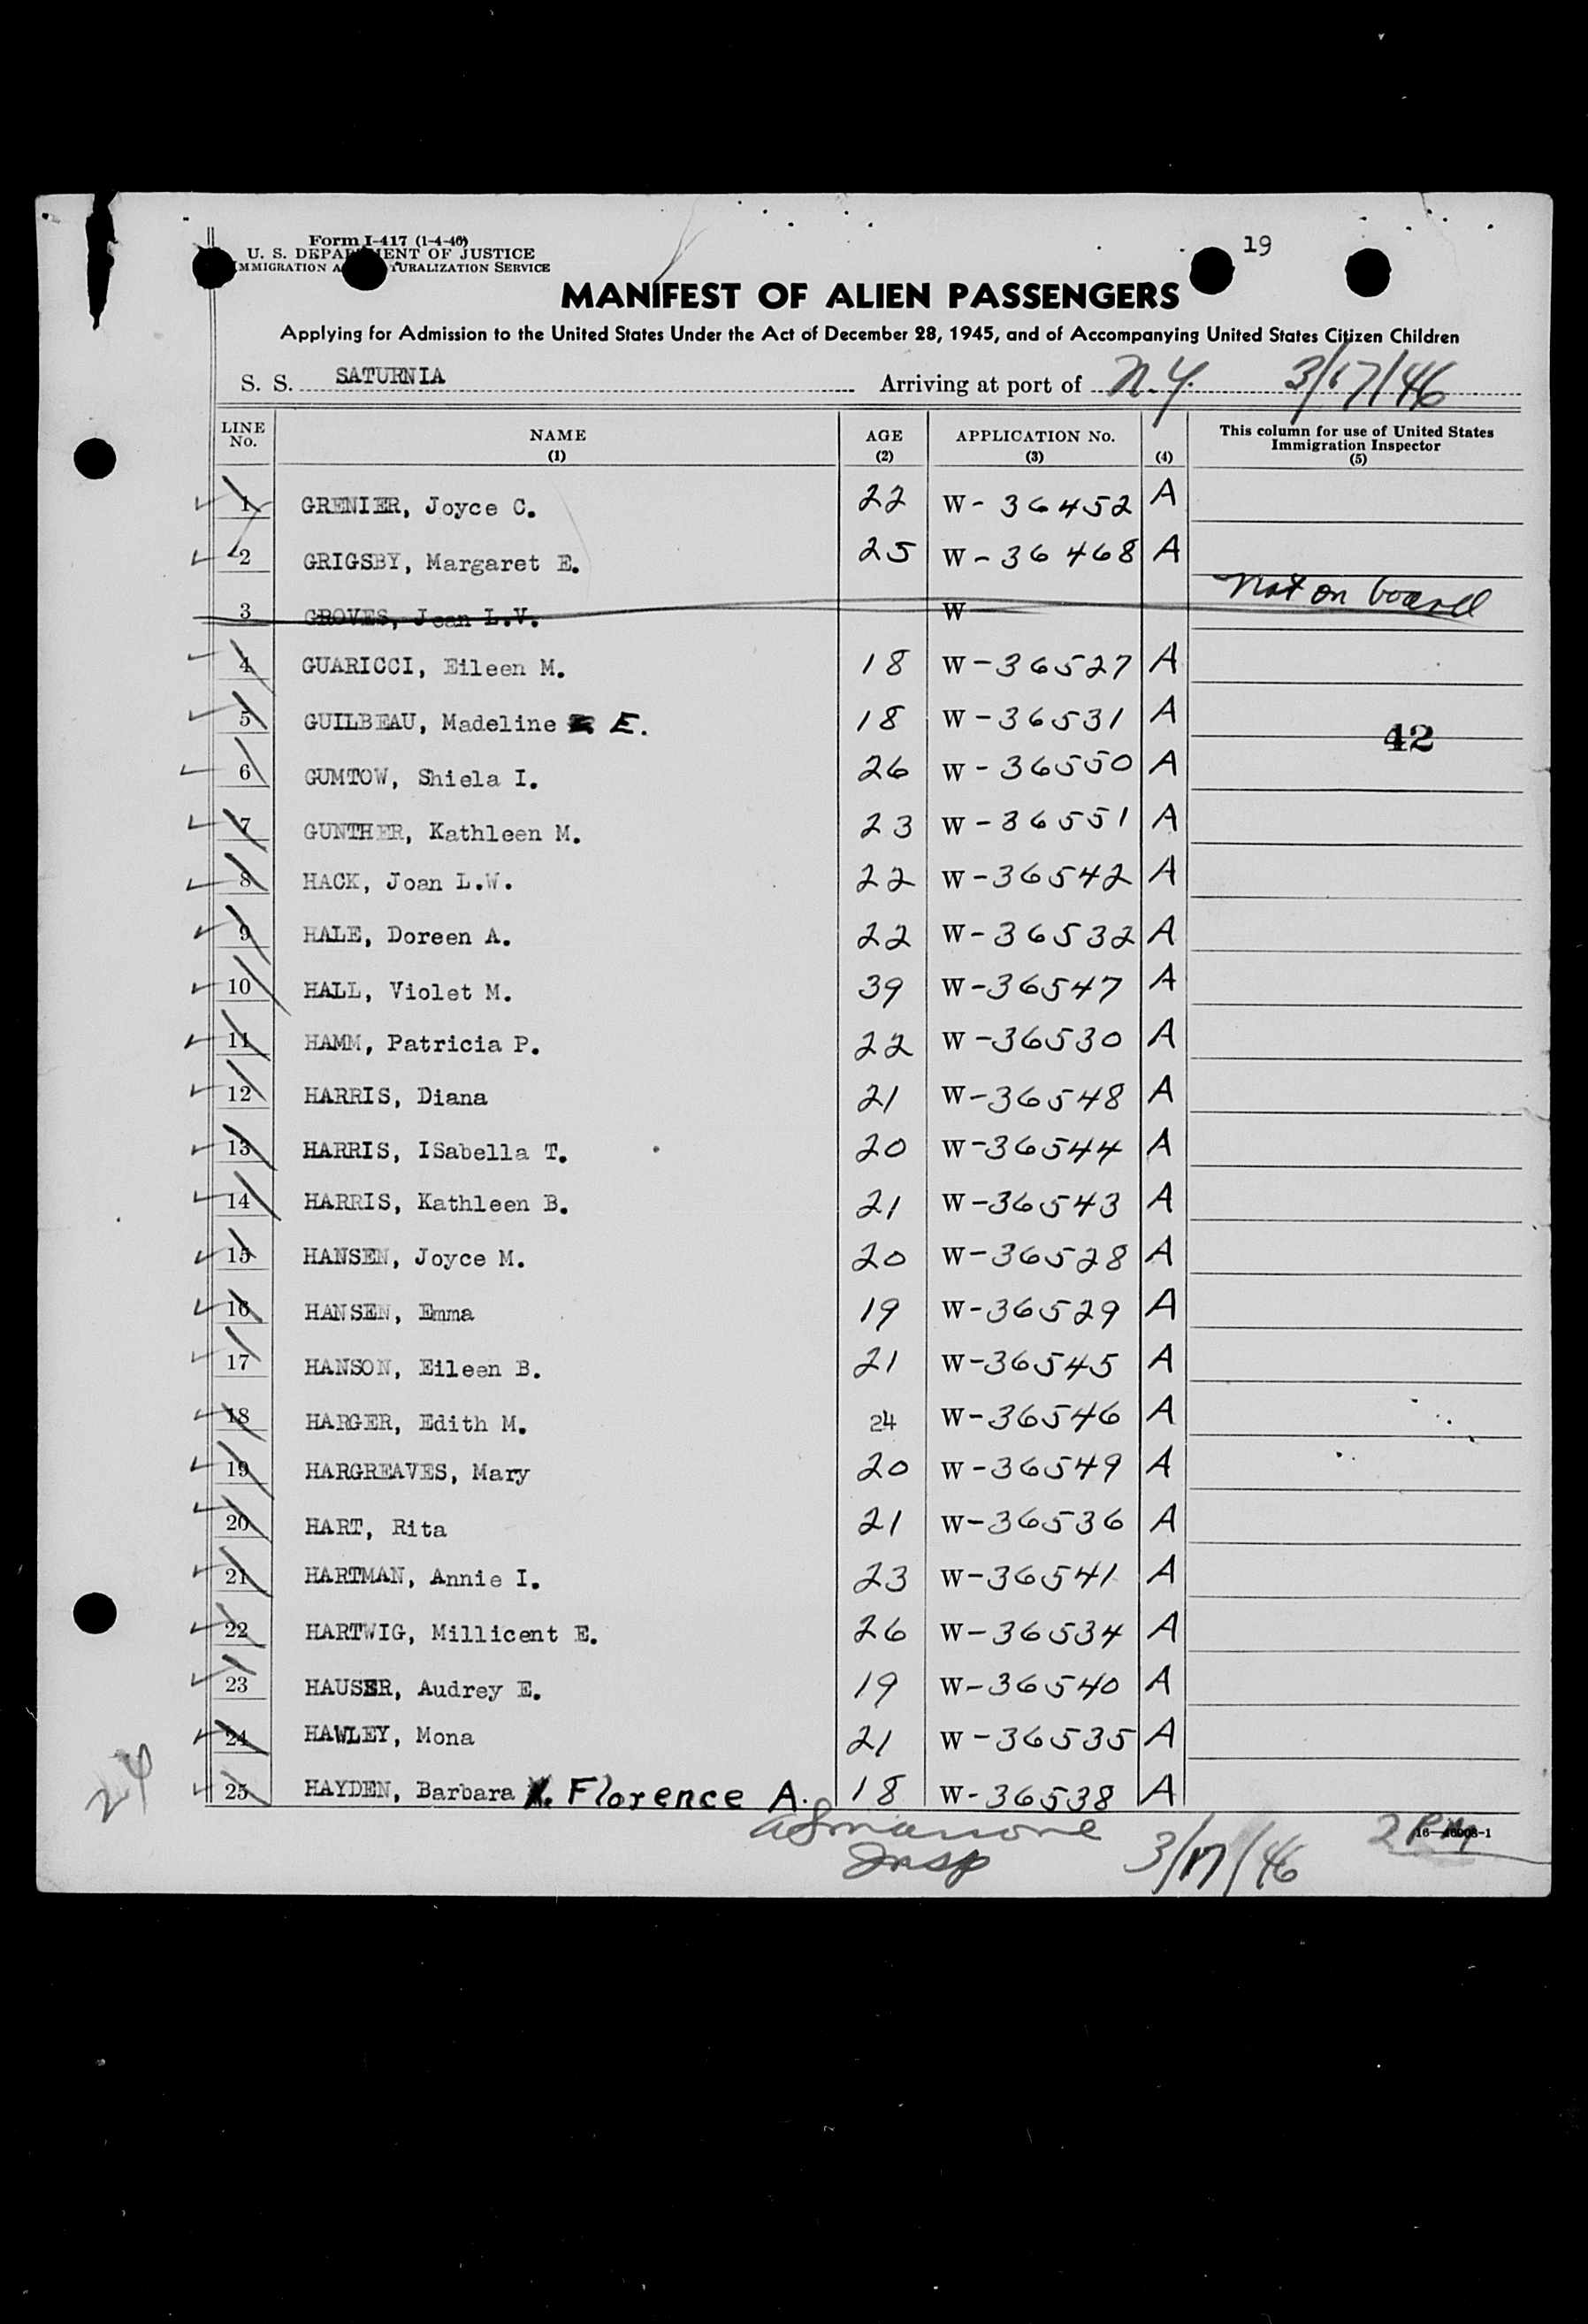 Form I-417 (1-4-46)
U. S. DEPARTMENT OF JUSTICE
IMMIGRATION AND NATURALIZATION SERVICE
19
MANIFEST OF ALIEN PASSENGERS
Applying for Admission to the United States Under the Act of December 28, 1945, and of Accompanying United States Citizen Children
S. S. SATURNIA Arriving at port of N.Y. 3/17/46
LINE No. NAME (1) AGE (2) APPLICATION No. (3) (4) This column for use of United States Immigration Inspector (5)
1 GRENIER, Joyce C. 22 W-36452 A
2 GRIGSBY, Margaret E. 25 W-36468 A
3 GROVES, Joan L.V. W Not on board
4 GUARICCI, Eileen M. 18 W-36527 A
5 GUILBEAU, Madeline E. 18 W-36531 A
42
6 GUMTOW, Shiela I. 26 W-36550 A
7 GUNTHER, Kathleen M. 23 W-36551 A
8 HACK, Joan L.W. 22 W-36542 A
9 HALE, Doreen A. 22 W-36532 A
10 HALL, Violet M. 39 W-36547 A
11 HAMM, Patricia P. 22 W-36530 A
12 HARRIS, Diana 21 W-36548 A
13 HARRIS, ISabella T. 20 W-36544 A
14 HARRIS, Kathleen B. 21 W-36543 A
15 HANSEN, Joyce M. 20 W-36528 A
16 HANSEN, Emma 19 W-36529 A
17 HANSON, Eileen B. 21 W-36545 A
18 HARGER, Edith M. 24 W-36546 A
19 HARGREAVES, Mary 20 W-36549 A
20 HART, Rita 21 W-36536 A
21 HARTMAN, Annie I. 23 W-36541 A
22 HARTWIG, Millicent E. 26 W-36534 A
23 HAUSER, Audrey E. 19 W-36540 A
24 HAWLEY, Mona 21 W-36535 A
24
25 HAYDEN, Barbara Florence A. 18 W-36538 A
Insp 3/17/46 2 PM